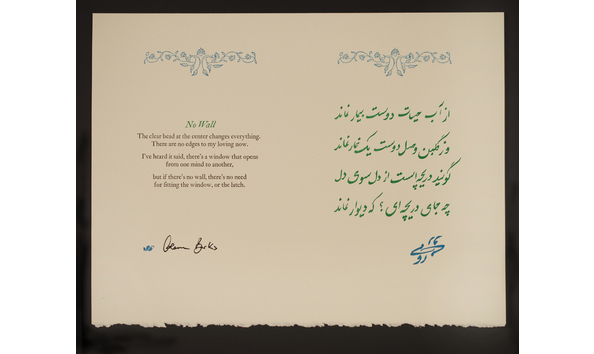 No Wall
The clear bead at the center changes everything.
There are no edges to my loving now.
I've heard it said, there's a window that opens
from one mind to another,
but if there's no wall, there's no need
for fitting the window, or the latch.
Coleman Barks
از آب حیات دوست بیمار نماند
وز گلبن وصل دوست یک خار نماند
گویند دریچه‌ایست از دل سوی دل
چه جای دریچه‌ای؟ که دیوار نماند